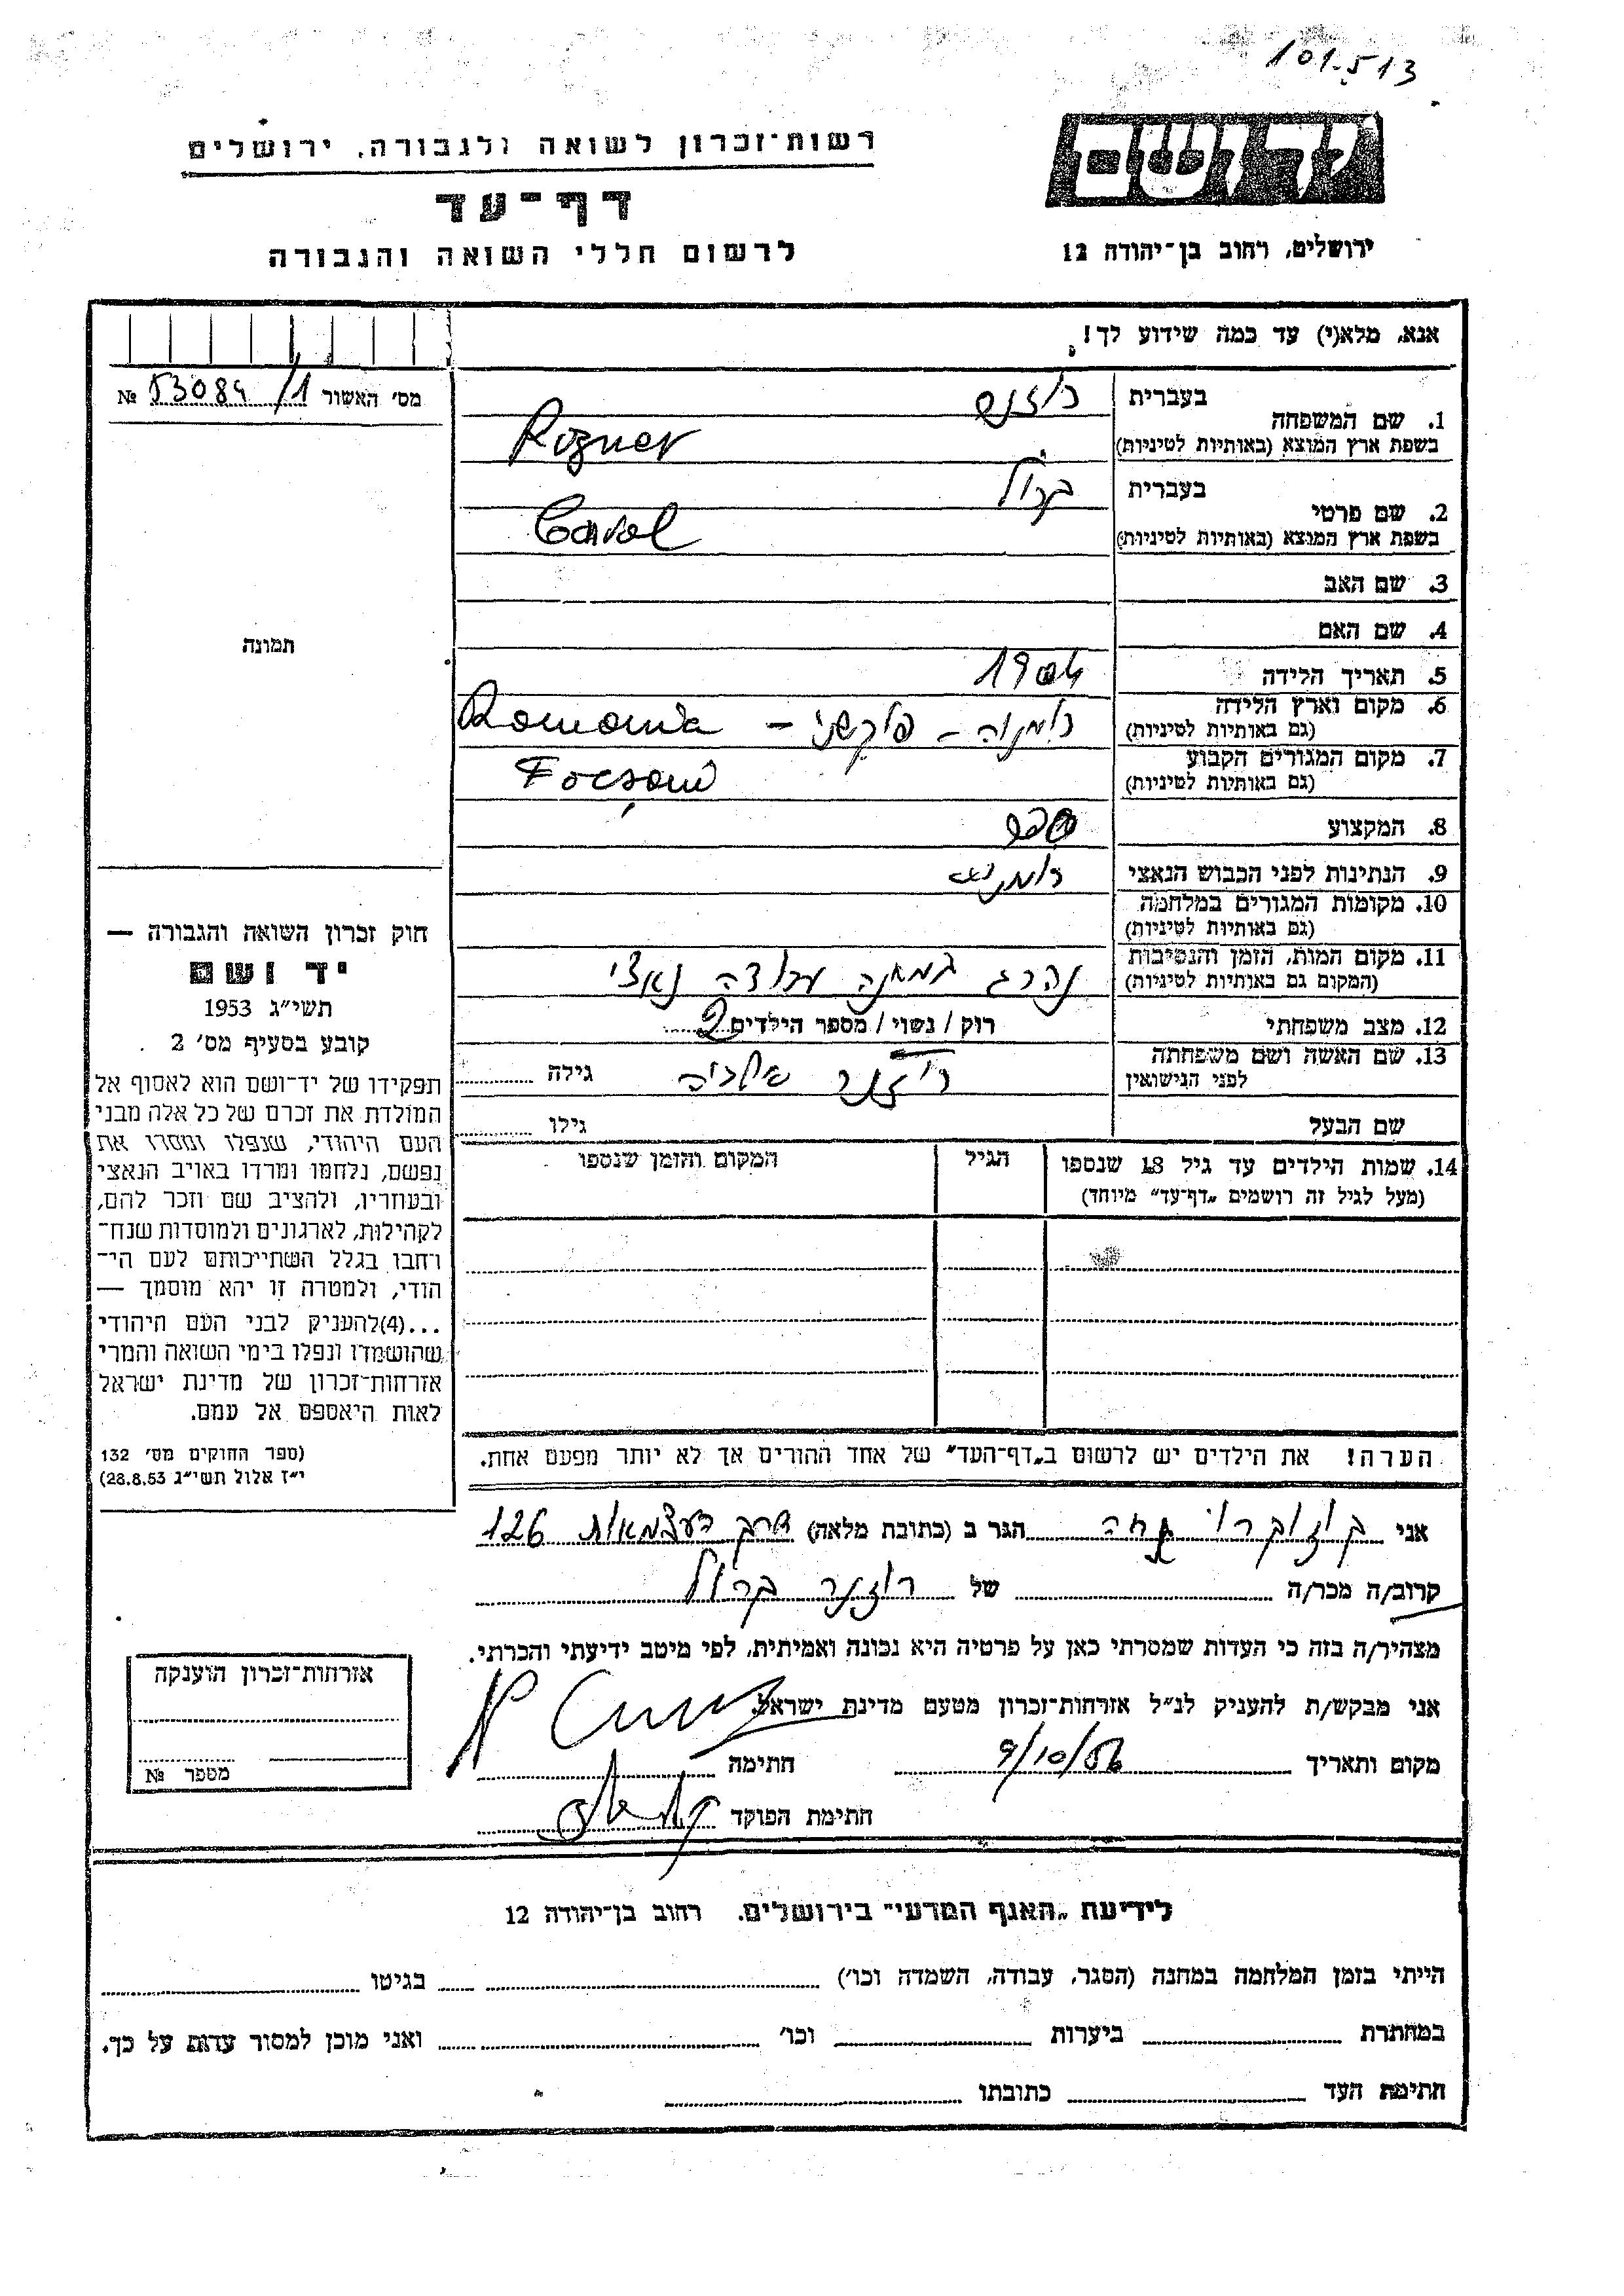 101.513
ידושם
ירושלים, רחוב בן־יהודה 12
רשות־זכרון לשואה ולגבורה, ירושלים
דף־עד
לרשום חללי השואה והגבורה
אנא, מלא(י) עד כמה שידוע לך!
מס' האשור 53084/1 №
תמונה
1. שם המשפחה
בעברית רוזנר
בשפת ארץ המוצא (באותיות לטיניות) Rozner
2. שם פרטי
בעברית קרול
בשפת ארץ המוצא (באותיות לטיניות) Carol
3. שם האב
4. שם האם
5. תאריך הלידה 1904
6. מקום וארץ הלידה רומניה - פוקשני - Romania
(גם באותיות לטיניות)
7. מקום המגורים הקבוע Focşani
(גם באותיות לטיניות)
8. המקצוע ספר
9. הנתינות לפני הכבוש הנאצי רומנית
10. מקומות המגורים במלחמה
(גם באותיות לטיניות)
11. מקום המות, הזמן והנסיבות נהרג במחנה עבודה נאצי
(המקום גם באותיות לטיניות)
12. מצב משפחתי רוק / נשוי / מספר הילדים 2
13. שם האשה ושם משפחתה רוזנר גילה
לפני הנישואין
שם הבעל גילו
14. שמות הילדים עד גיל 18 שנספו הגיל המקום והזמן שנספו
(מעל לגיל זה רושמים „דף־עד” מיוחד)
הערה! את הילדים יש לרשום ב„דף־העד” של אחד ההורים אך לא יותר מפעם אחת.
חוק זכרון השואה והגבורה —
יד ושם
תשי״ג 1953
קובע בסעיף מס' 2
תפקידו של יד־ושם הוא לאסוף אל
המולדת את זכרם של כל אלה מבני
העם היהודי, שנפלו ומסרו את
נפשם, נלחמו ומרדו באויב הנאצי
ובעוזריו, ולהציב שם וזכר להם,
לקהילות, לארגונים ולמוסדות שנח־
רחבו בגלל השתייכותם לעם הי־
הודי, ולמטרה זו יהא מוסמך —
...(4)להעניק לבני העם היהודי
שהושמדו ונפלו בימי השואה והמרי
אזרחות־זכרון של מדינת ישראל
לאות היאספם אל עמם.
(ספר החוקים מס' 132
י״ז אלול תשי״ג 28.8.53)
אני הגר ב (כתובת מלאה) דרך העצמאות 126
קרוב/ה מכר/ה של רוזנר קרול
מצהיר/ה בזה כי העדות שמסרתי כאן על פרטיה היא נכונה ואמיתית, לפי מיטב ידיעתי והכרתי.
אני מבקש/ת להעניק לנ״ל אזרחות־זכרון מטעם מדינת ישראל.
מקום ותאריך 9/10/56 חתימה
חתימת הפוקד
אזרחות־זכרון הוענקה
מספר №
לידיעת „האגף המדעי” בירושלים, רחוב בן־יהודה 12
הייתי בזמן המלחמה במחנה (הסגר, עבודה, השמדה וכו') בגיטו
במחתרת ביערות וכו' ואני מוכן למסור עדות על כך.
חתימת העד כתובתו